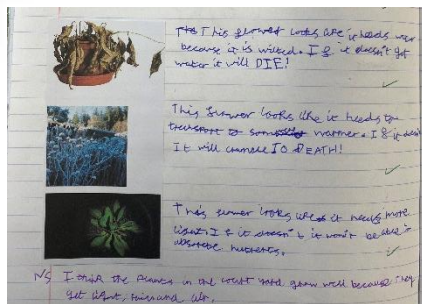 This flower looks like it needs water
because it is wilted. If it doesn't get
water it will DIE!
This flower looks like it needs to
warmer. If it doesn't
It will TO DEATH!
This flower looks like it needs more
light. If it doesn't it won't be able to
nutrients.
NS I think the plants in the court yard grow well because they
get light, and air.